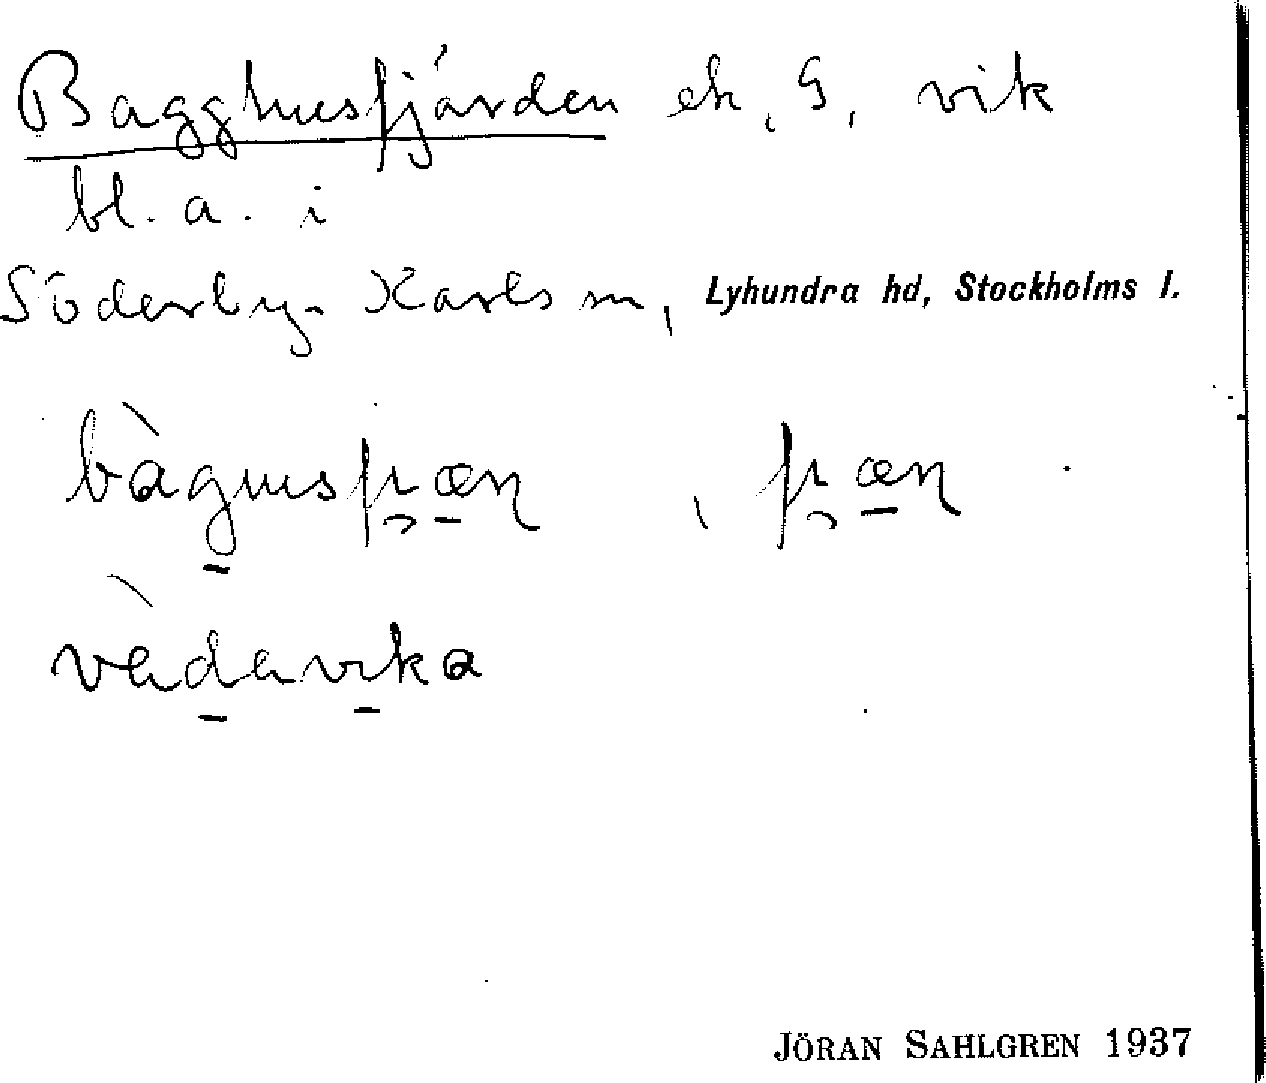 Bagghusfjärden ek, G, vik
bl. a. i
Söderby-Karls sn, Lyhundra hd, Stockholms l.
vèdavika
JÖRAN SAHLGREN 1937